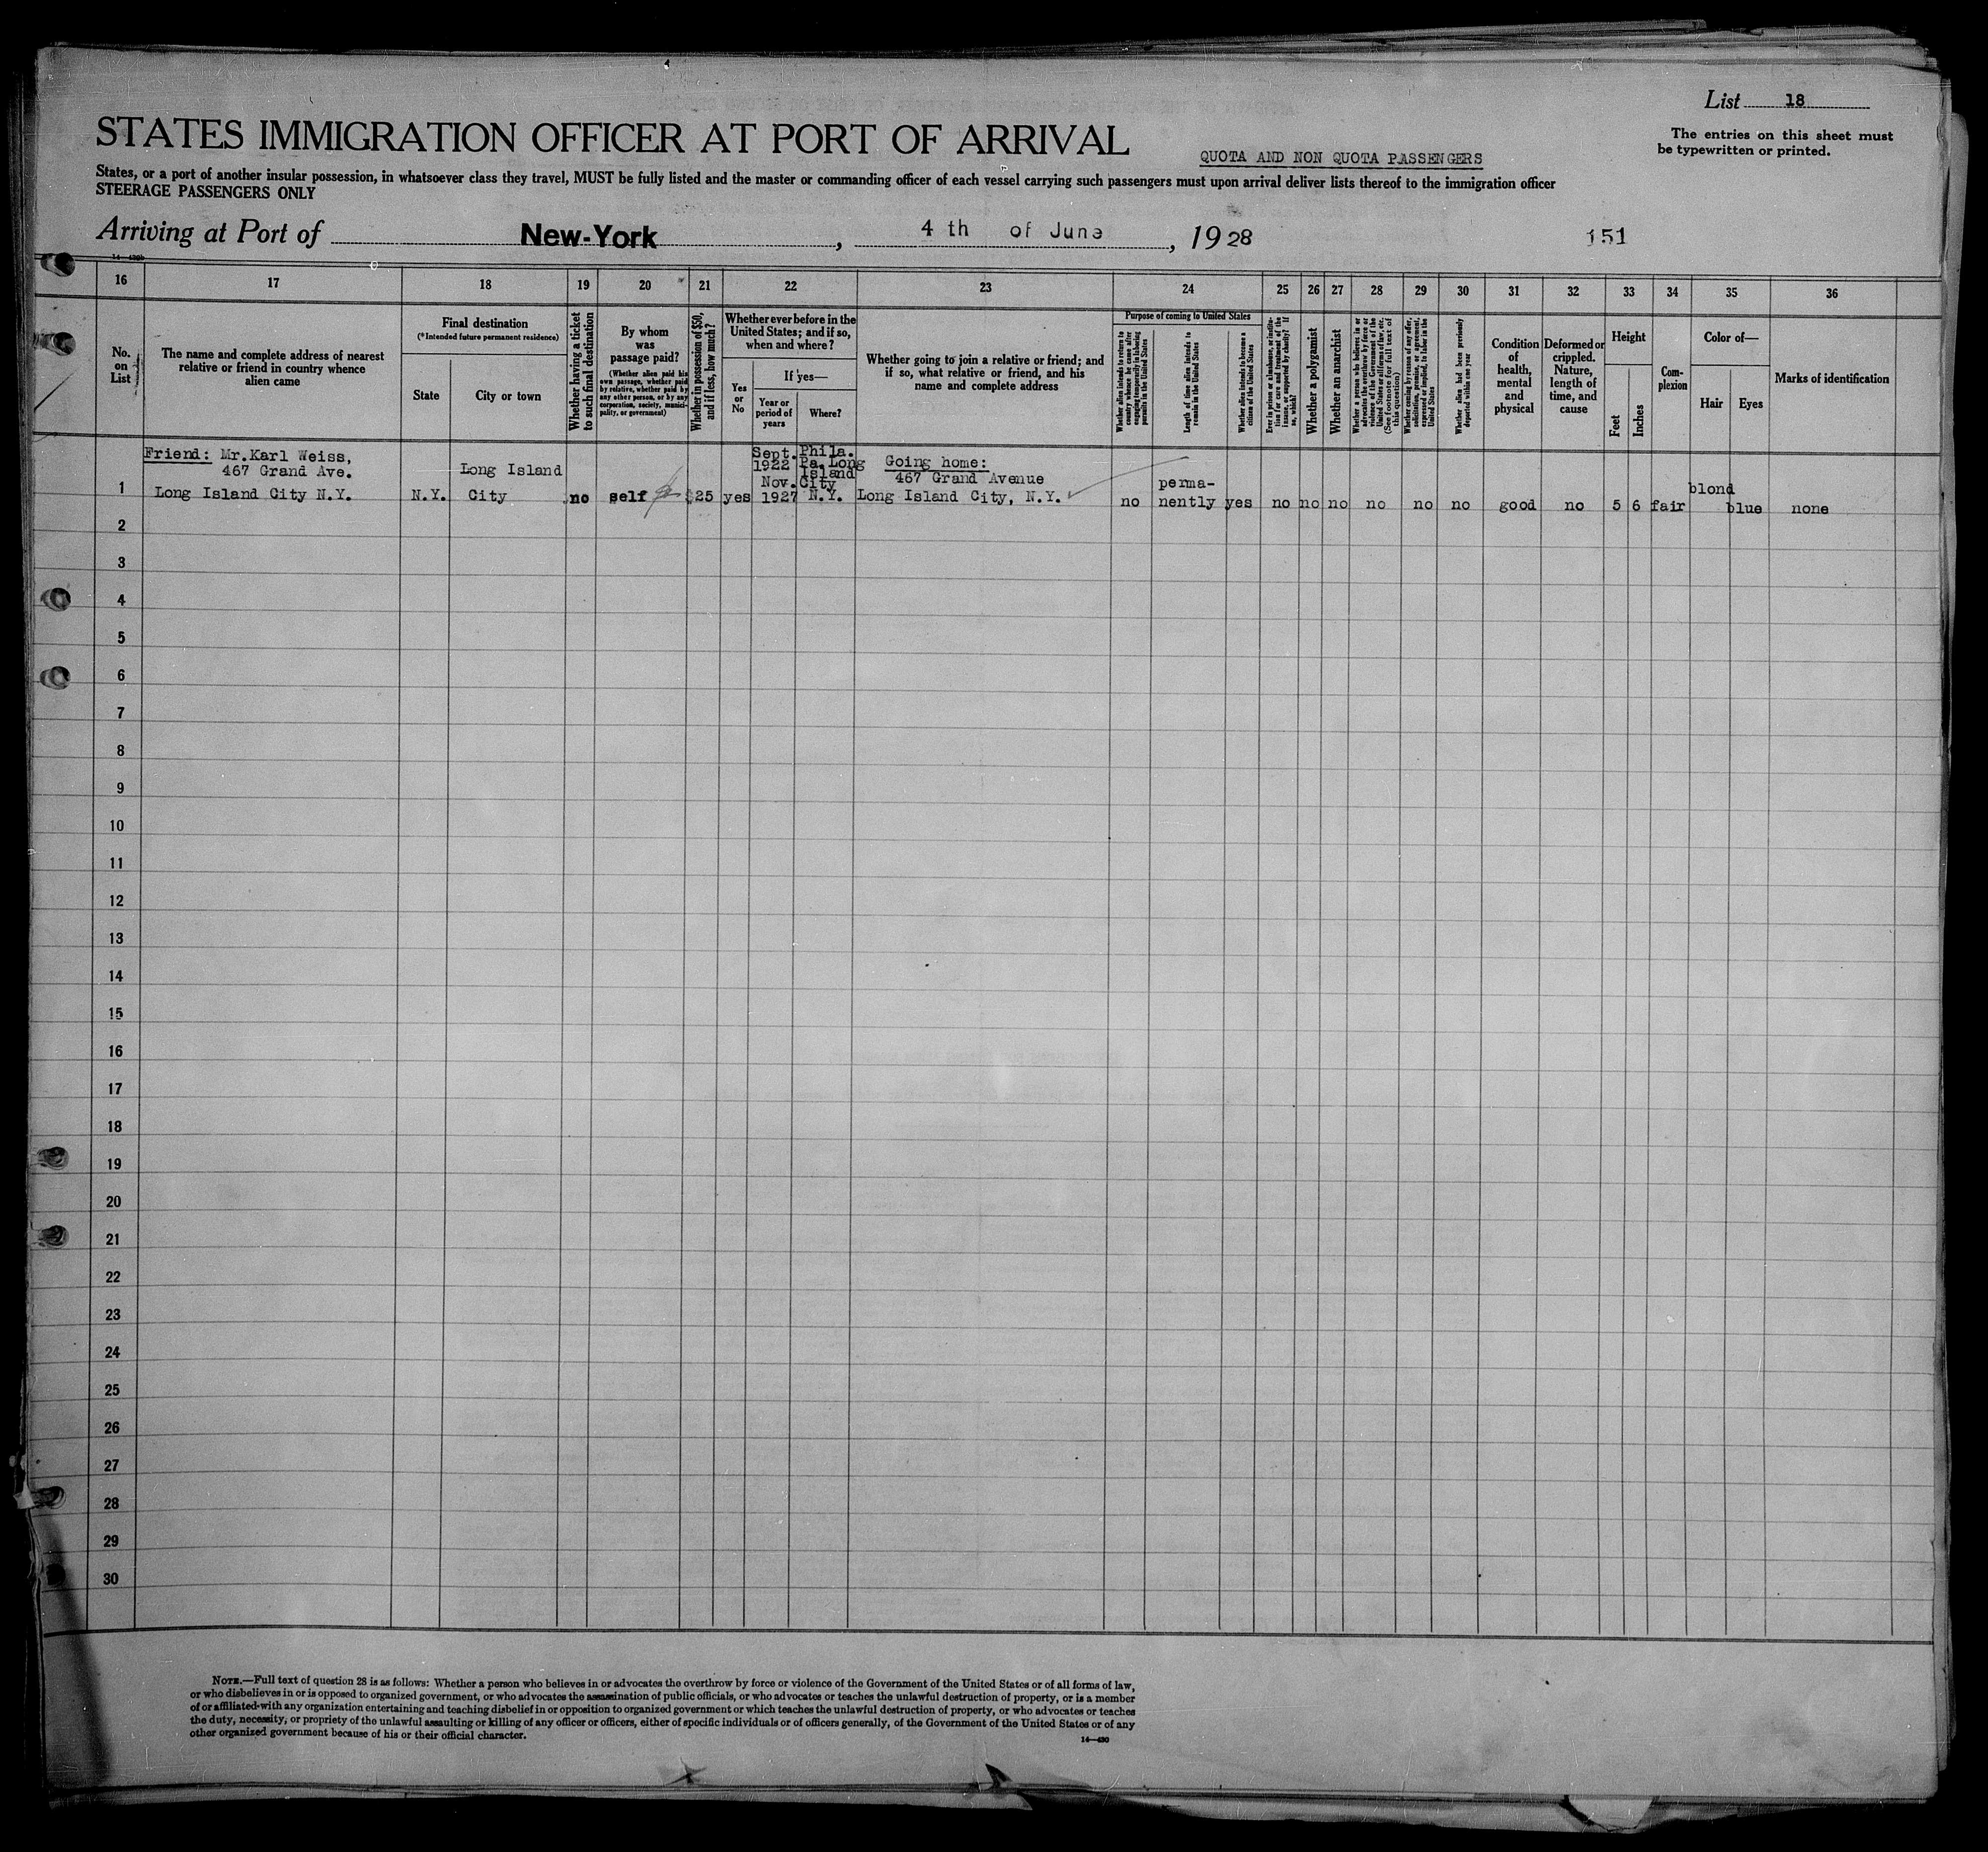 List 18
STATES IMMIGRATION OFFICER AT PORT OF ARRIVAL
The entries on this sheet must
be typewritten or printed.
QUOTA AND NON QUOTA PASSENGERS
States, or a port of another insular possession, in whatsoever class they travel, MUST be fully listed and the master or commanding officer of each vessel carrying such passengers must upon arrival deliver lists thereof to the immigration officer
STEERAGE PASSENGERS ONLY
Arriving at Port of New-York, 4 th of June, 1928
151
16 17 18 19 20 21 22 23 24 25 26 27 28 29 30 31 32 33 34 35 36
No. on List
The name and complete address of nearest
relative or friend in country whence
alien came
Final destination
(*Intended future permanent residence)
State
City or town
Whether having a ticket
to such final destination
By whom
was
passage paid?
(Whether alien paid his
own passage, whether paid
by relative, whether paid by
any other person, or by any
corporation, society, munici-
pality, or government)
Whether in possession of $50,
and if less, how much?
Whether ever before in the
United States; and if so,
when and where?
Yes
or
No
If yes—
Year or
period of
years
Where?
Whether going to join a relative or friend; and
if so, what relative or friend, and his
name and complete address
Purpose of coming to United States
Whether alien intends to return to
country whence he came after
engaging temporarily in laboring
pursuits in the United States
Length of time alien intends to
remain in the United States
Whether alien intends to become a
citizen of the United States
Ever in prison or almshouse, or institu-
tion for care and treatment of the
insane, or supported by charity? If
so, which?
Whether a polygamist
Whether an anarchist
Whether a person who believes in or
advocates the overthrow by force or
violence of the Government of the
United States or all forms of law, etc.
(See footnote for full text of
this question)
Whether coming by reason of any offer,
solicitation, promise, or agreement,
expressed or implied, to labor in the
United States
Whether alien had been previously
deported within one year
Condition
of
health,
mental
and
physical
Deformed or
crippled.
Nature,
length of
time, and
cause
Height
Feet
Inches
Com-
plexion
Color of—
Hair
Eyes
Marks of identification
1
Friend: Mr.Karl Weiss,
467 Grand Ave.
Long Island City N.Y.
N.Y.
Long Island
City
no
self
$25
yes
Sept.
1922
Nov.
1927
Phila.
Pa.Long
Island
City
N.Y.
Going home:
467 Grand Avenue
Long Island City, N.Y.
no
perma-
nently
yes
no no no no no no good no 5 6 fair
blond
blue
none
2
3
4
5
6
7
8
9
10
11
12
13
14
15
16
17
18
19
20
21
22
23
24
25
26
27
28
29
30
NOTE.—Full text of question 28 is as follows: Whether a person who believes in or advocates the overthrow by force or violence of the Government of the United States or of all forms of law,
or who disbelieves in or is opposed to organized government, or who advocates the assassination of public officials, or who advocates or teaches the unlawful destruction of property, or is a member
of or affiliated with any organization entertaining and teaching disbelief in or opposition to organized government or which teaches the unlawful destruction of property, or who advocates or teaches
the duty, necessity, or propriety of the unlawful assaulting or killing of any officer or officers, either of specific individuals or of officers generally, of the Government of the United States or of any
other organized government because of his or their official character.
14—430